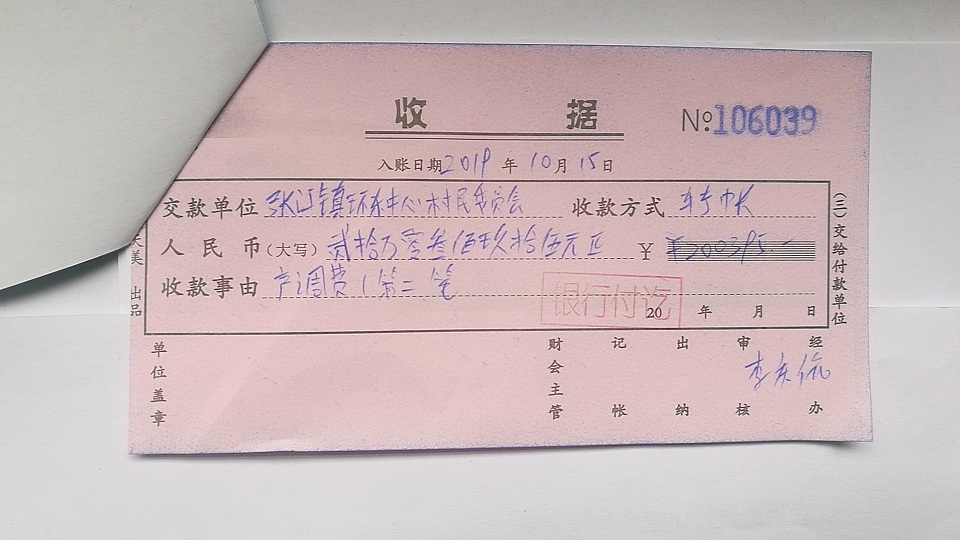 收据
№106039
入账日期2019年10月15日
交款单位 张江镇环东中心村民委员会 收款方式 转帐
人民币(大写) 贰拾万零叁佰玖拾伍元正 ¥ ¥200395.-
收款事由 产调费(第二笔
银行付讫
20 年 月 日
(三)交给付款单位
美 出品
单位盖章
财会主管 记帐 出纳 审核 经办